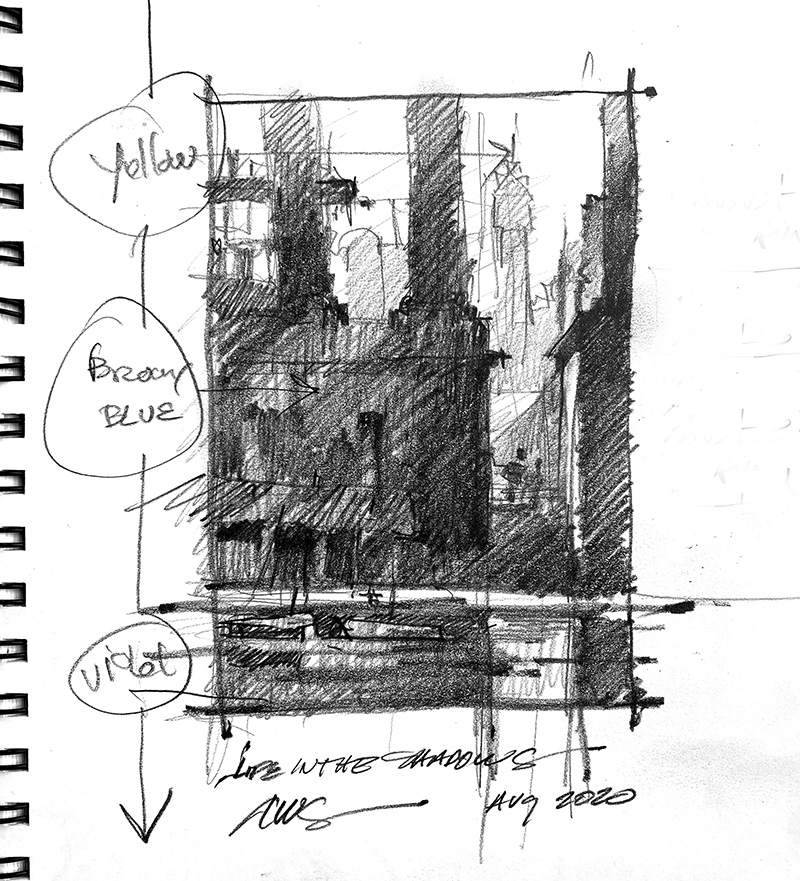 Yellow
Brown
BLUE
Violet
LIFE IN THE SHADOWS
Aug 2020